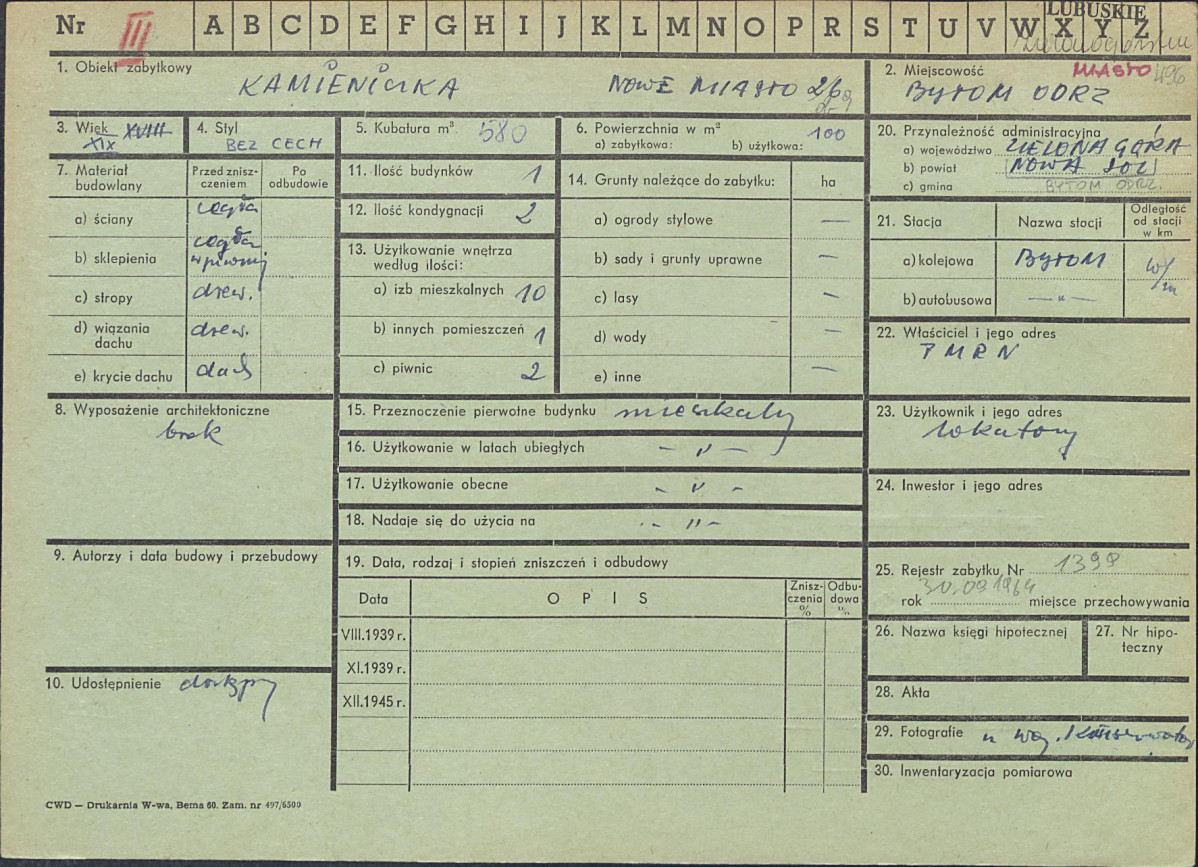 Nr III A B C D E F G H I J K L M N O P R S T U V W X Y Z
LUBUSKIE
1. Obiekt zabytkowy
KAMIENICZKA NOWE MIASTO 26
2. Miejscowość MIASTO 496
BYTOM ODRZ
3. Wiek XVIII
XIX
4. Styl
BEZ CECH
5. Kubatura m³ 580
6. Powierzchnia w m² 100
a) zabytkowa: b) użytkowa:
7. Materiał budowlany
Przed znisz-
czeniem
Po
odbudowie
a) ściany cegła
b) sklepienia cegła
w piwnicy
c) stropy drew.
d) wiązania
dachu drew.
e) krycie dachu dach
8. Wyposażenie architektoniczne
brak
9. Autorzy i data budowy i przebudowy
10. Udostępnienie dostępny
CWD — Drukarnia W-wa, Bema 60. Zam. nr 497/6500
11. Ilość budynków 1
12. Ilość kondygnacji 2
13. Użytkowanie wnętrza
według ilości:
a) izb mieszkalnych 10
b) innych pomieszczeń 1
c) piwnic 2
14. Grunty należące do zabytku: ha
a) ogrody stylowe —
b) sady i grunty uprawne —
c) lasy —
d) wody —
e) inne —
15. Przeznaczenie pierwotne budynku mieszkalny
16. Użytkowanie w latach ubiegłych — " —
17. Użytkowanie obecne — " —
18. Nadaje się do użycia na — " —
19. Data, rodzaj i stopień zniszczeń i odbudowy
Data
O P I S
Znisz-
czenia
%
Odbu-
dowa
%
VIII.1939 r.
XI.1939 r.
XII.1945 r.
20. Przynależność administracyjna
a) województwo ZIELONA GÓRA
b) powiat NOWA SÓL
c) gmina BYTOM ODRZ.
21. Stacja
Nazwa stacji
Odległość
od stacji
w km
a) kolejowa BYTOM w/m
b) autobusowa — " —
22. Właściciel i jego adres
PMRN
23. Użytkownik i jego adres
lokatorzy
24. Inwestor i jego adres
25. Rejestr zabytku Nr 1399
30.09.1964
rok miejsce przechowywania
26. Nazwa księgi hipotecznej
27. Nr hipo-
teczny
28. Akta
29. Fotografie u woj. Konserwatora
30. Inwentaryzacja pomiarowa